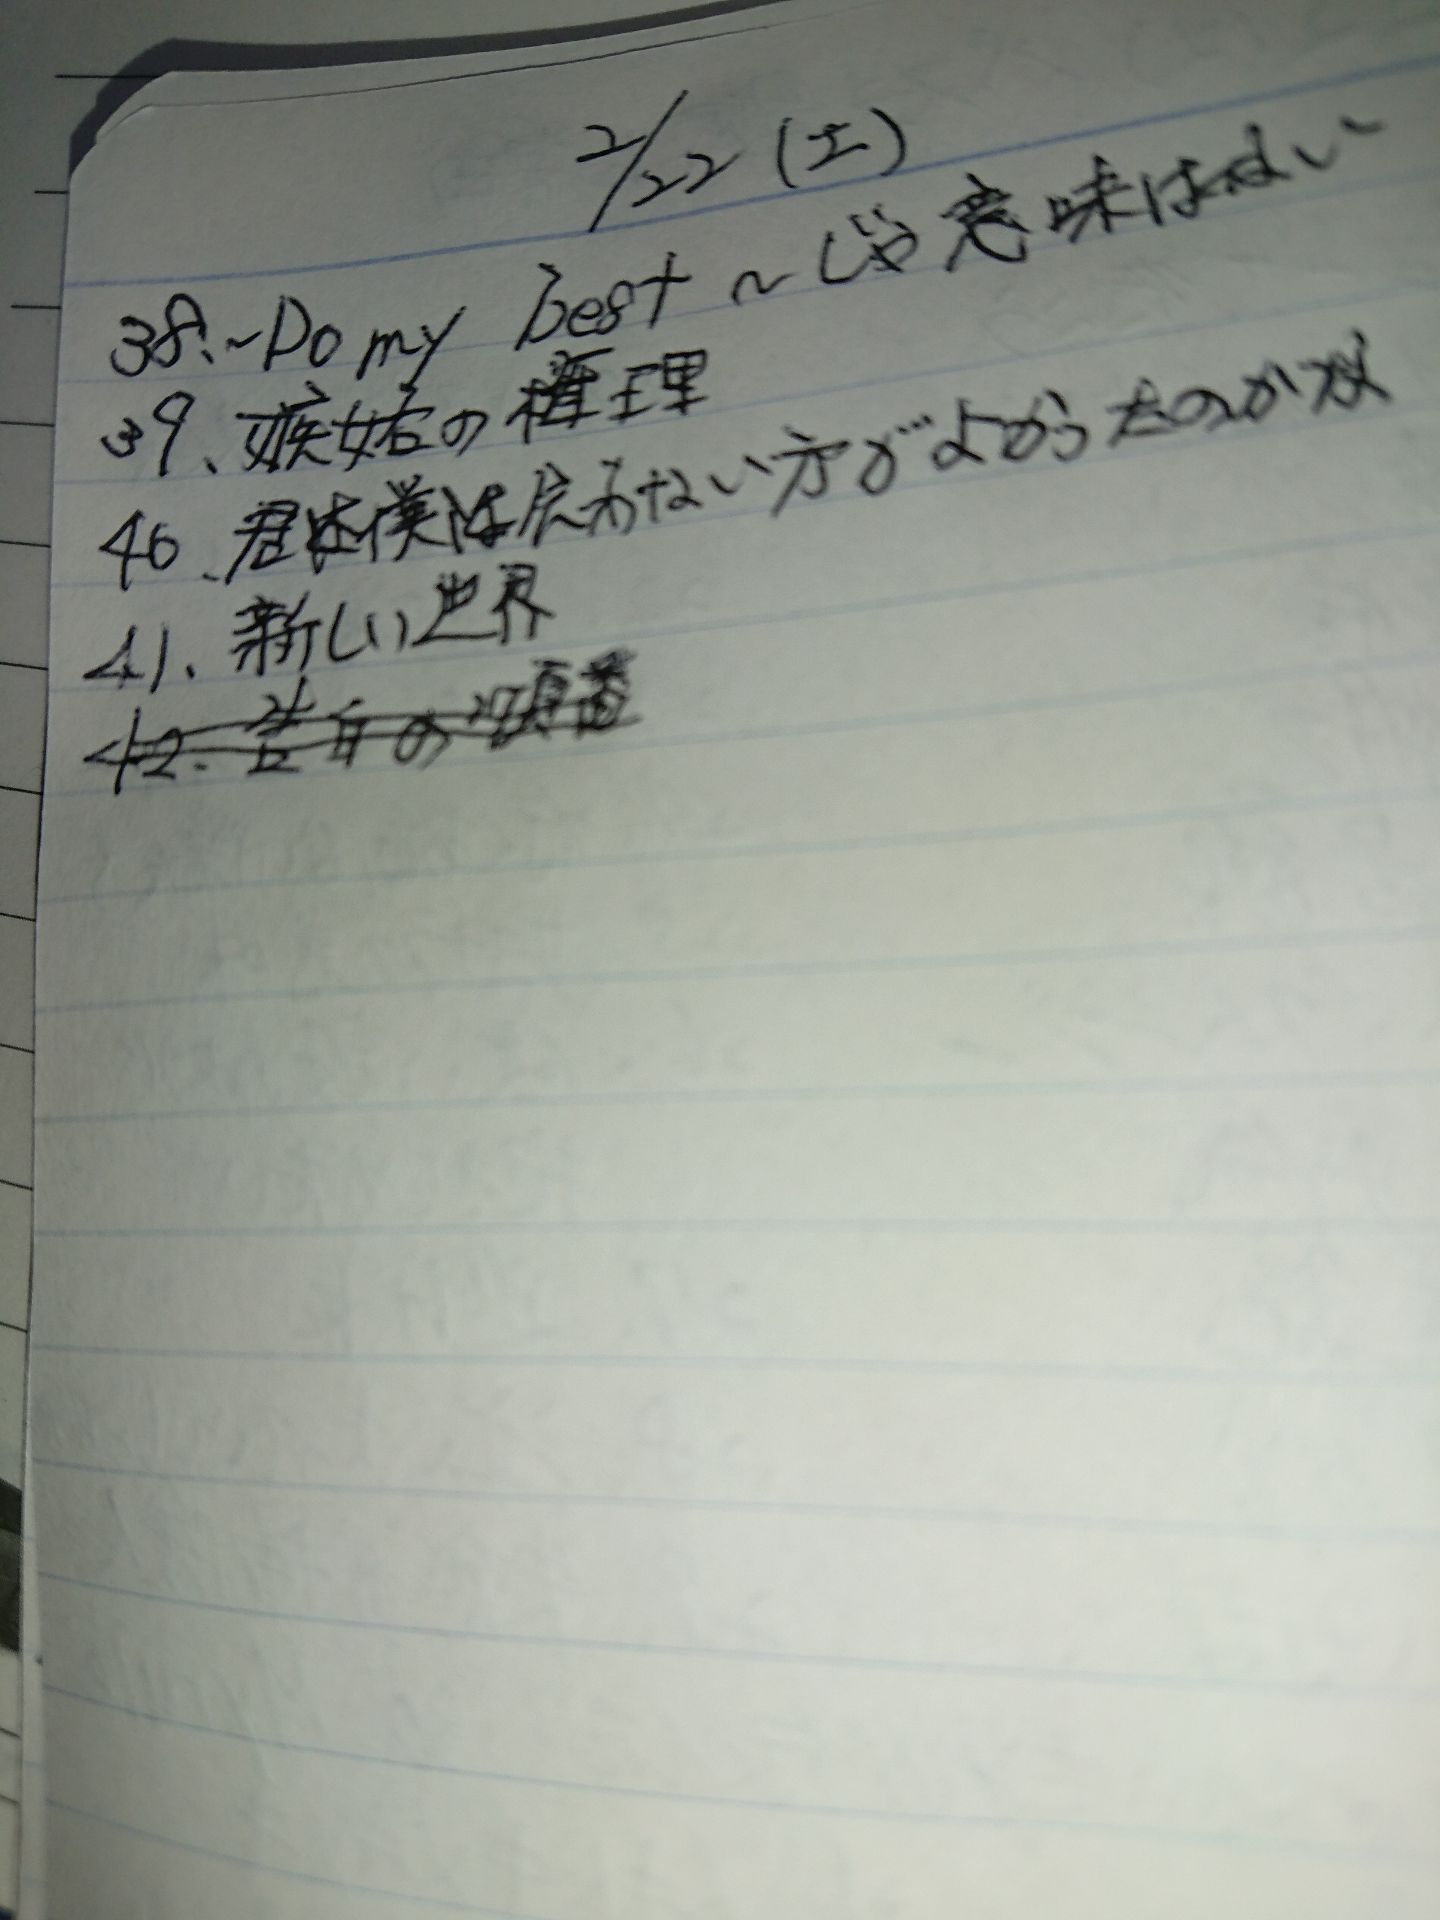 2/22 (土)
38.~Do my best~じゃ意味はない
39、嫉妬の権理
40、君は僕は会わない方がよかったのかな
41、新しい世界
42. の順番